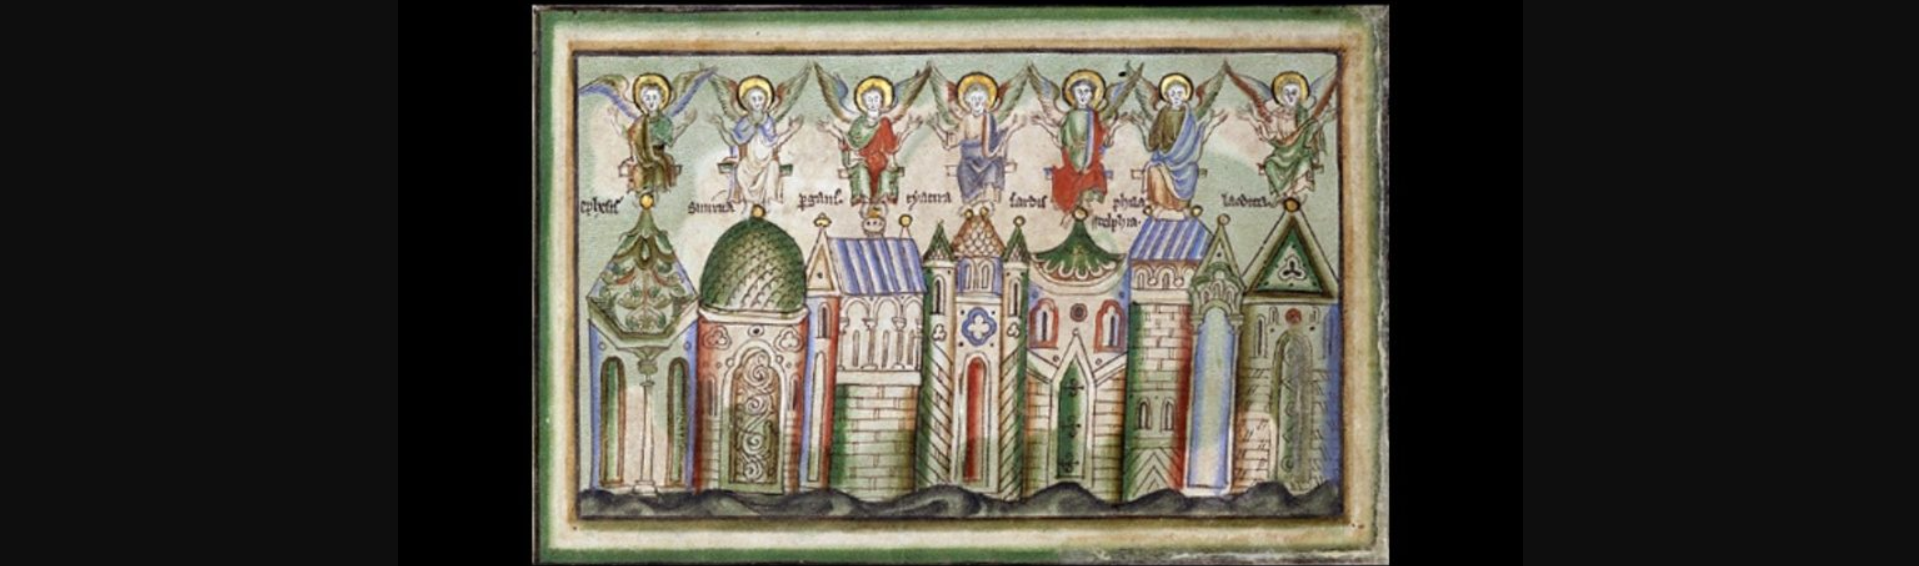 ephesis
smirna
pgam̄.
tyatira
sardis
phila
delphia.
laodicia.